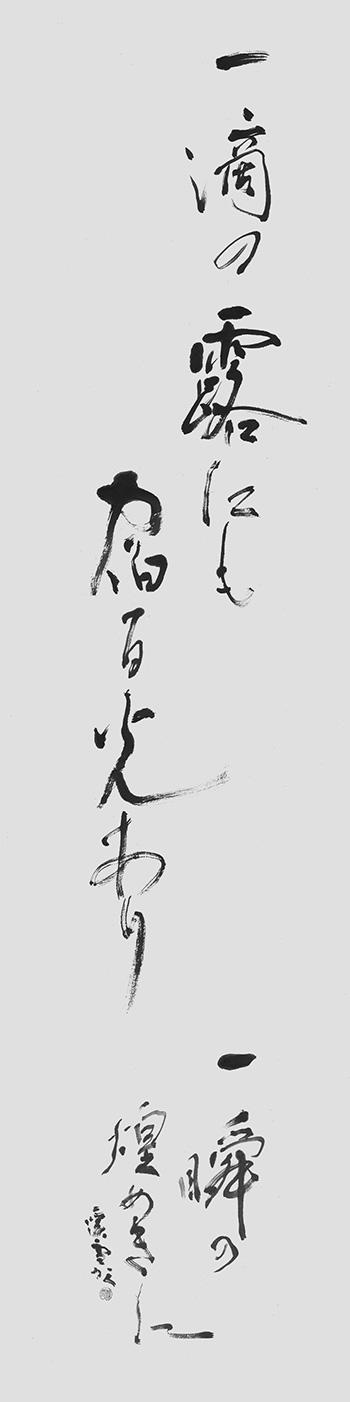 一滴の露にも
宿る光あり
一瞬の
煌めきに